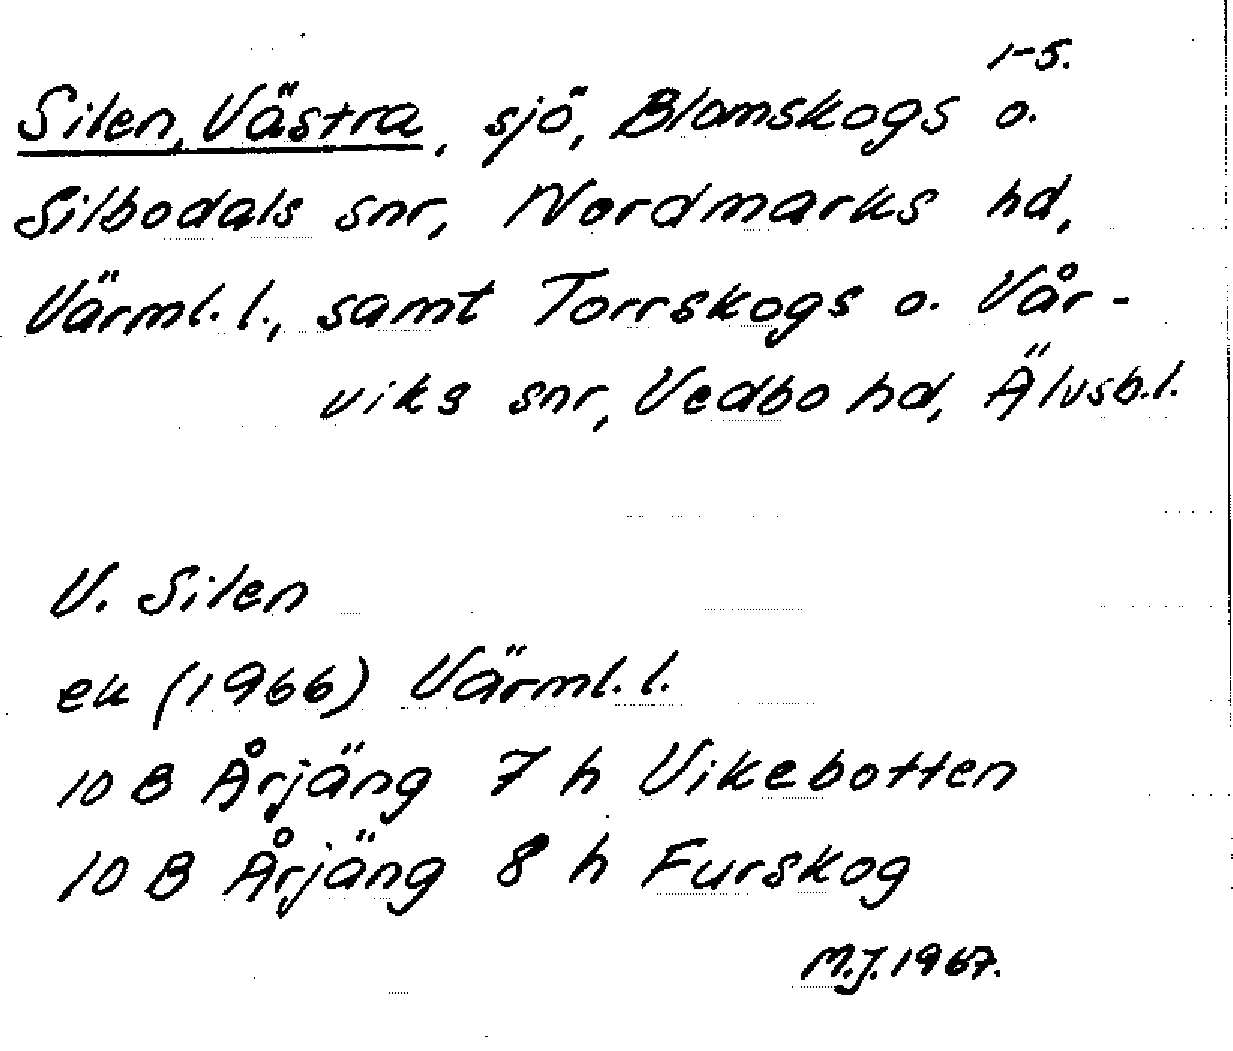 1-5.
Silen, Västra, sjö, Blomskogs o.
Silbodals snr, Nordmarks hd,
Värml. l., samt Torrskogs o. Vår-
viks snr, Vedbo hd, Älvsb. l.
V. Silen
ek (1966) Värml. l.
10 B Årjäng 7 h Vikebotten
10 B Årjäng 8 h Furskog
M.J. 1967.